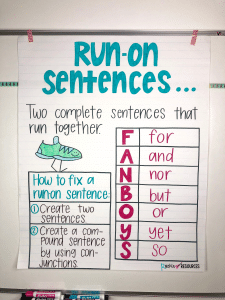 Run-on
sentences...
Two complete sentences that
run together.
How to fix a
run-on sentence:
① Create two
sentences
② Create a com-
pound sentence
by using con-
junctions
F for
A and
N nor
B but
O or
Y yet
S so
RESOURCES